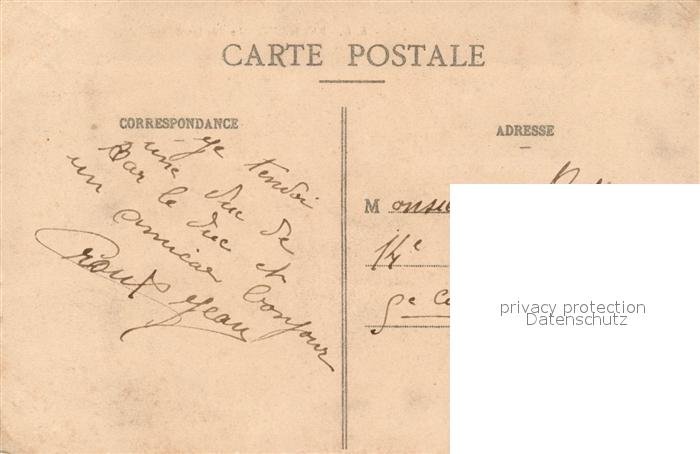 CARTE POSTALE
CORRESPONDANCE
Je tendoi
une vue de
Bar le Duc et
un amical bonjour
Roux Jean
ADRESSE
Monsieu
14e
5e
privacy protection
Datenschutz